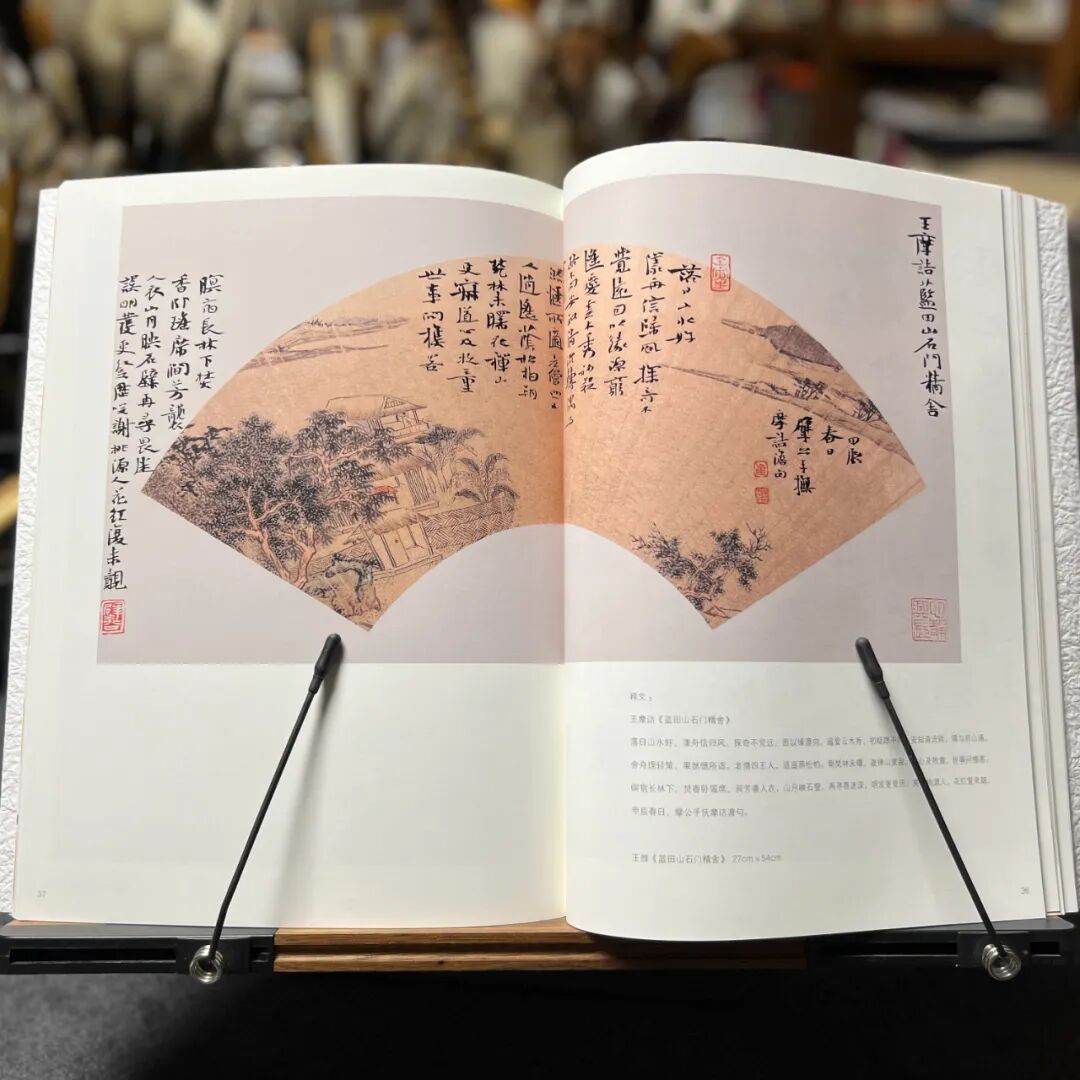 王摩詰藍田山石門精舍
落日山水好
漾舟信歸風 探奇不
覺遠因以緣源
遙愛雲木秀初疑
人逍遙蔭松柏朝
梵林未曙夜禪山
更寂道心及牧童
世事問樵客
暝宿長林下焚
香臥瑤席澗芳襲
人衣山月映石壁再尋畏迷
誤明發更登歷笑謝桃源人花紅復來覿
甲辰
春日
摩詰
释文：
王摩诘《蓝田山石门精舍》
落日山水好，漾舟信归风。探奇不觉远，因以缘源 遥爱云木秀，初疑路不 安知清流转，偶与前山通。
舍舟理轻策，果然惬所适。老僧四五人，逍遥荫松柏。朝梵林未曙，夜禅山更寂。 心及牧童，世事问樵客。
暝宿长林下，焚香卧瑶席。涧芳袭人衣，山月映石壁。再寻畏迷误，明发更登历。 源人，花红复来觌。
甲辰春日，擘公手抚摩诘 句。
王雄《蓝田山石门精舍》 27cm x 54cm
37
36